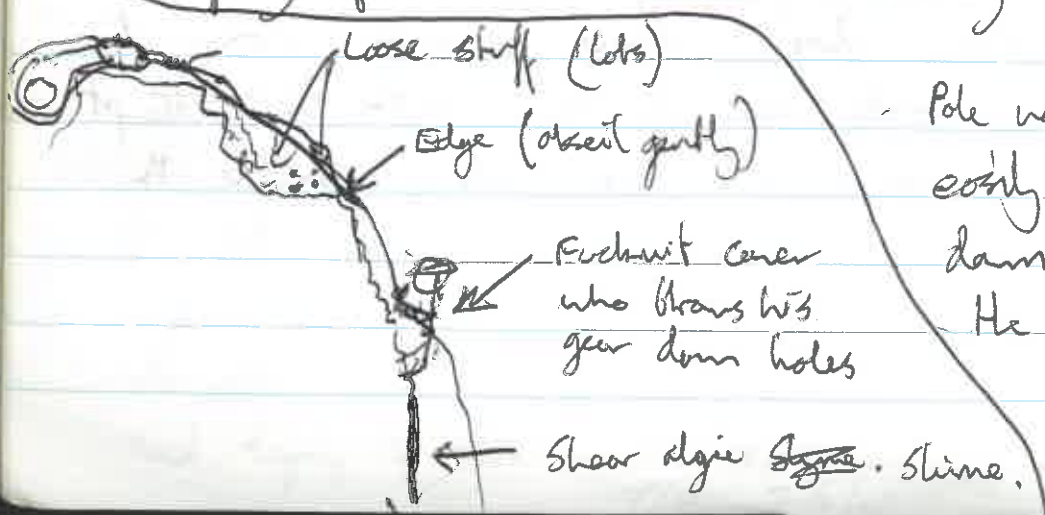 Loose stuff (lots)
Edge (abseil gently)
Fuckwit caver
who throws his
gear down holes
Shear algie Slyme. Slime.
Pole
easily
dam
He